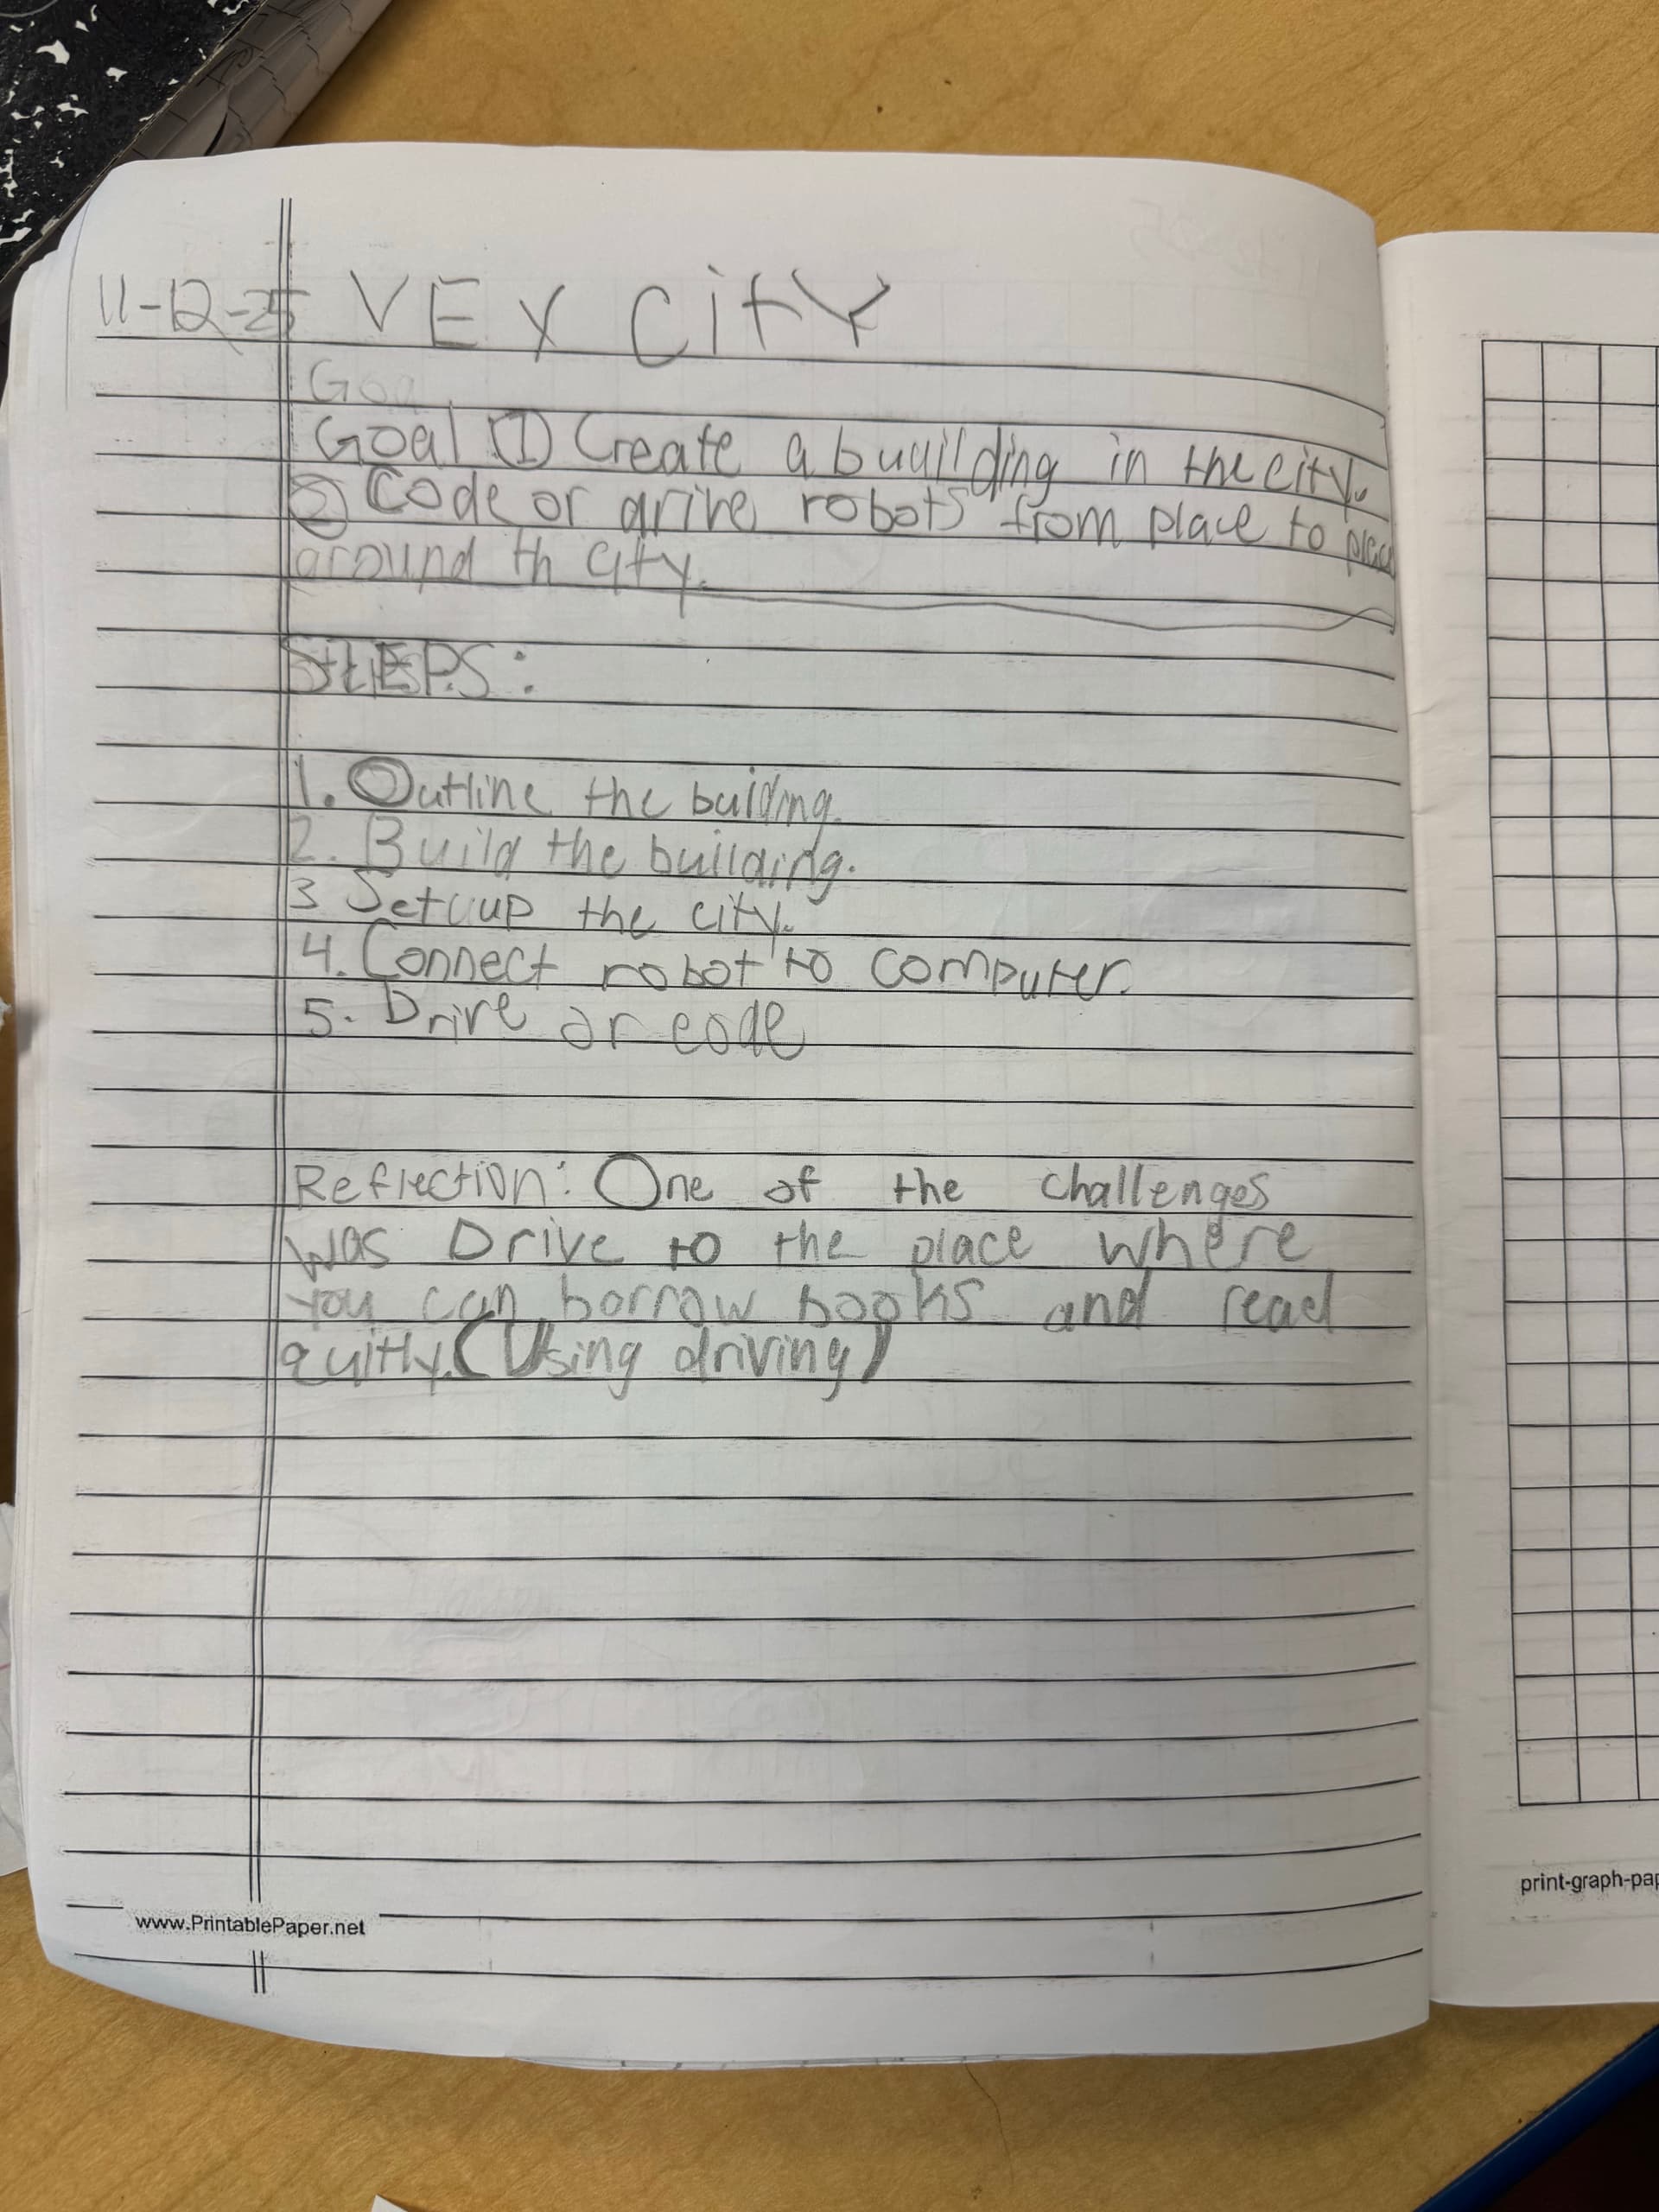 11-12-25 VEX CitY
Goa
Goal ① Create a buuilding in the city.
② Code or drive robots from place to place
around th city.
STEPS:
1. Outline the buidng.
2. Build the building.
3 Set up the city.
4. Connect robot to computer.
5. Drive or code
Reflection: One of the challenges
was Drive to the place where
you can borrow books and read
quitly. (Using driving)
www.PrintablePaper.net
print-graph-pap